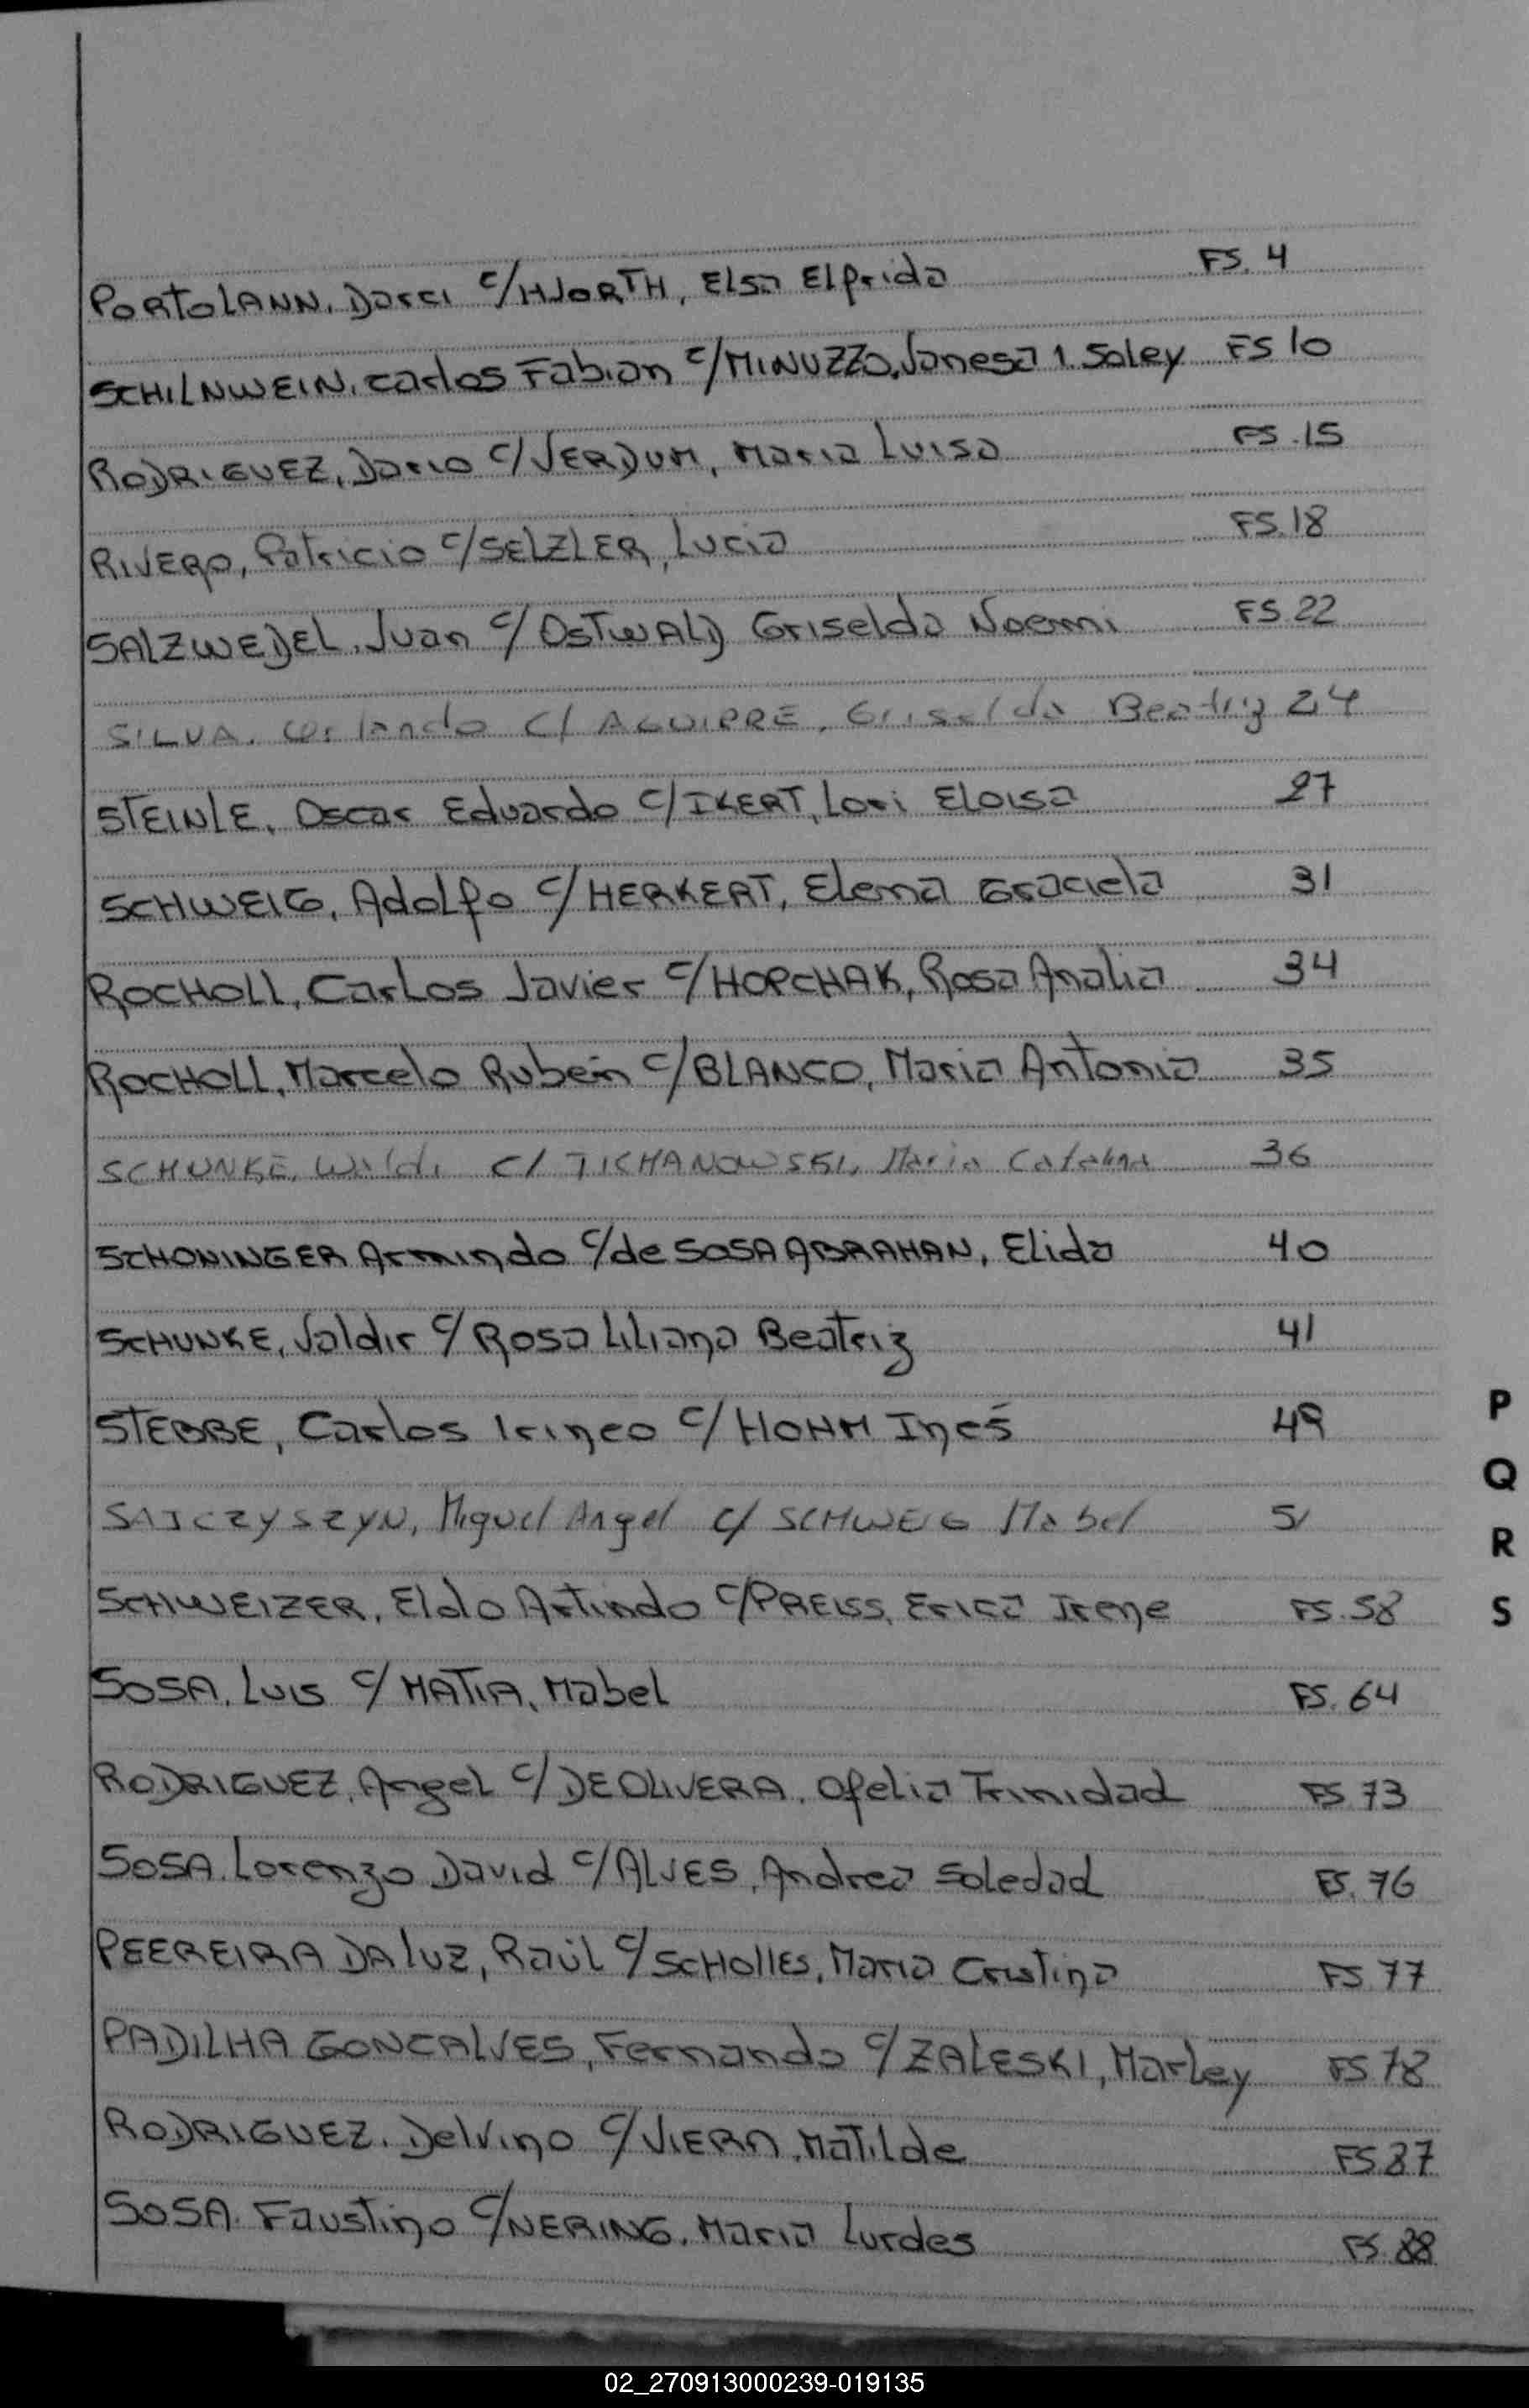 PORTOLANN, Darci c/HJORTH, Elsa Elfrida FS. 4
SCHILNWEIN, Carlos Fabian c/MINUZZO, Vanesa 1. Soley FS 10
RODRIGUEZ, Dario c/VERDUM, Maria Luisa FS. 15
RIVERO, Patricio c/SELZLER, Lucia FS. 18
SALZWEDEL, Juan c/ OSTWALD Griselda Noemi FS. 22
SILVA, Orlando C/ AGUIRRE, Griselda Beatriz 24
STEINLE, Oscar Eduardo c/IKERT, Lori Eloisa 27
SCHWEIG, Adolfo c/HERKERT, Elema Graciela 31
ROCHOLL, Carlos Javier c/HOPCHAK, Rosa Analia 34
ROCHOLL, Marcelo Rubén c/BLANCO, Maria Antonia 35
SCHUNKE, C/ TICHANOWSKI, Maria Catalina 36
SCHONINGER Armindo c/de SOSA ABRAHAN, Elida 40
SCHUNKE, Valdir c/ Rosa Liliana Beatriz 41
STEBBE, Carlos Irineo c/HOHM Inés 49
SAJCZYSZYN, Miguel Angel c/ SCHWEIG Mabel 51
SCHWEIZER, Eldo Arlindo c/PREISS, Erica Irene FS. 58
SOSA, Luis c/ MATIA, Mabel FS. 64
RODRIGUEZ, Angel c/DEOLIVERA, Ofelia Trinidad FS 73
SOSA, Lorenzo David c/ALVES, Andrea Soledad FS. 76
PEEREIRA DA LUZ, Raúl c/SCHOLLES, Maria Cristina FS. 77
PADILHA GONCALVES, Fernando c/ZALESKI, Marley FS 78
RODRIGUEZ, Delvino c/VIERA, Matilde FS 87
SOSA, Faustino c/NERING, Maria Lurdes FS. 88
P
Q
R
S
02_270913000239-019135